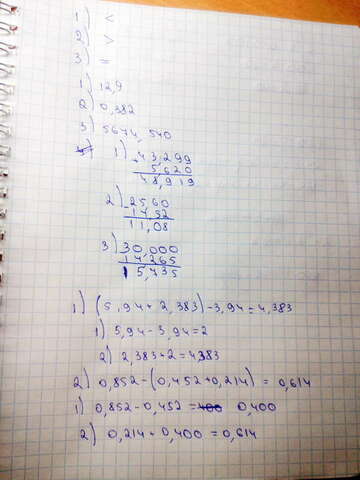 1) <
2) >
3) =
1) 12,9
2) 0,382
3) 5674,540
1) 43,299
+ 5,620
48,919
2) 25,60
- 14,52
11,08
3) 30,000
14,265
15,735
1) (5,94 + 2,383) - 3,94 = 4,383
1) 5,94 - 3,94 = 2
2) 2,383 + 2 = 4,383
2) 0,852 - (0,452 + 0,214) = 0,614
1) 0,852 - 0,452 = 0,400
2) 0,214 + 0,400 = 0,614